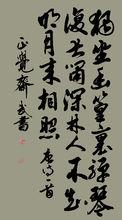 獨坐幽篁裏彈琴
復長嘯深林人不知
明月来相照 唐詩一首
正覺齋
書